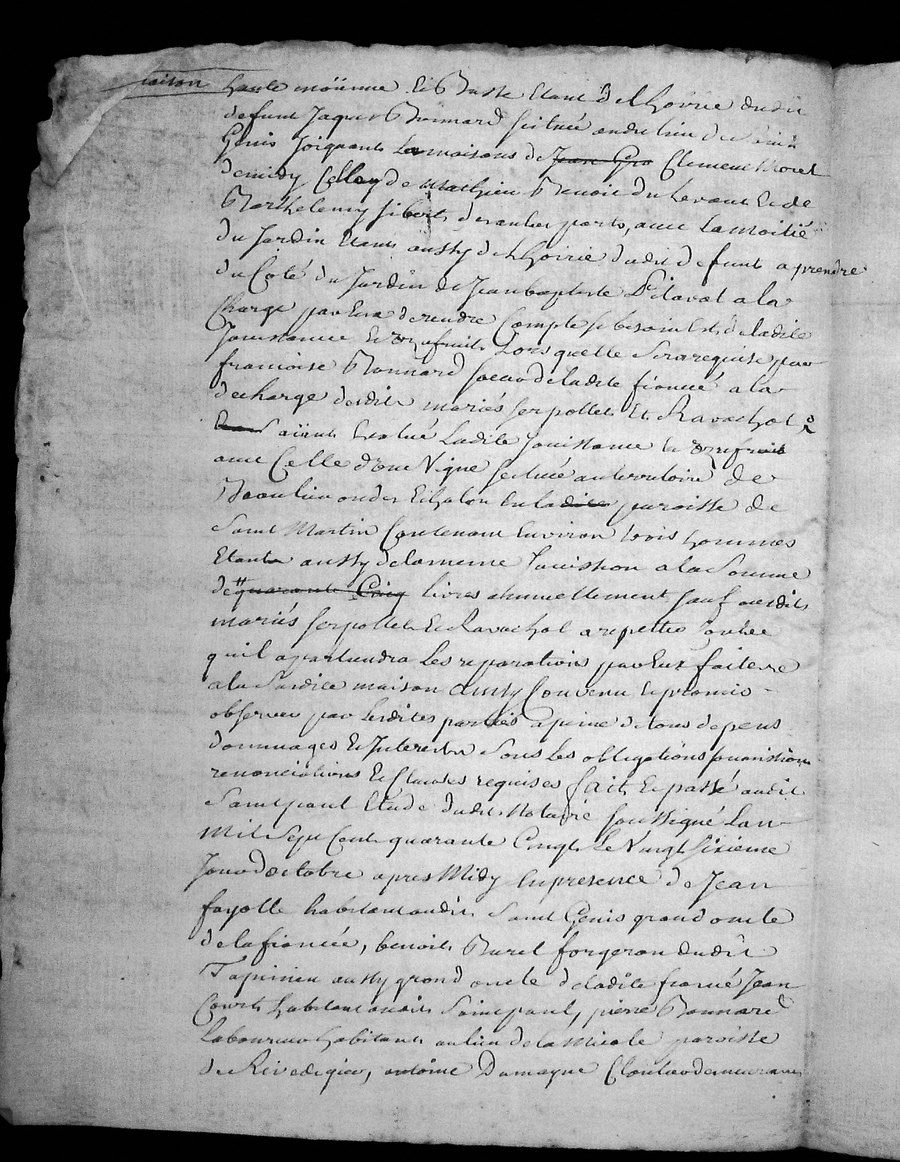 maison haute moÿenne Et Basse Etant de Lhoirie dudit
defunt Jaques Bonnard scituée audit lieu de Saint
Genis Joignant Les maisons de Jean Gro Clement Morel
de midy Celles de Mathieu Benoit du Levant Et de
Barthelemy sibert d'autres parts, avec La moitié
du Jardin Etant aussy de Lhoirie dudit defunt a prendre
du Coté du Jardin de Jean baptiste Delaval a la
Charge par Eux de rendre Compte si besoin Est de ladite
Jouissance Et uzufruit Lors quelle Sera requise par
francoise Bonnard soeur de ladite fiancée a la
decharge desdits mariés serpollet Et Ravachol
Evalué Ladite Jouissance Et uzufruit
avec Celle d'une Vigne scituée au territoire de
Beaulieu ou des Echalon En ladite paroisse de
Saint Martin Contenant Environ trois hommes
Etant aussy de la meme Jouission a la Somme
de quarante Cinq livres annuellement sauf auxdits
mariés serpollet Et Ravachol a repetter contre
qu'il apartiendra Les reparations par Eux faites
a la Susdite maison ainsy Convenu Et promis
observer par Lesdites parties a peine de tous depens
dommages Et Interests Sous Les obligations soumissions
renonciations Et Clauses requises fait Et passé audit
Saint paul Etude dudit Notaire soussigné Lan
Mil Sept Cent quarante Cinq Le Vingt sixieme
Jour d'octobre apres Midy En presence de Jean
fayolle habitant audit Saint Genis grand oncle
de la fiancée, benoit Burel forgeron dudit
Tapinieu aussy grond oncle de ladite fiancée Jean
Court habitant audit Saint paul, pierre Bonnard
Laboureur habitant au lieu de la Micole paroisse
de Rivedegier, antoine Damayne Cloutier demeurant